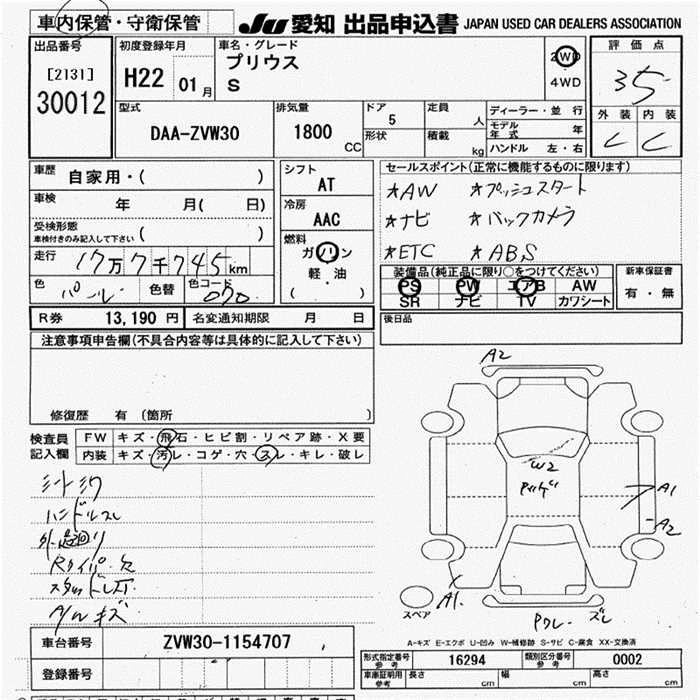 車内保管・守衛保管
JU 愛知 出品申込書 JAPAN USED CAR DEALERS ASSOCIATION
出品番号
[2131]
30012
初度登録年月
H22 01月
車名・グレード
プリウス
S
2WD
・
4WD
評価点
3.5
外装 内装
C C
型式
DAA-ZVW30
排気量
1800 CC
ドア
5
形状
定員 人
積載 kg
ディーラー・並行
モデル年式 年
ハンドル 左・右
車歴 自家用・( )
車検 年 月( 日)
受検形態
車検付きのみ記入して下さい ( )
走行 17万7千745km
色 パール 色替 色コード 070
シフト
AT
冷房
AAC
燃料
ガソリン
軽・油
( )
セールスポイント(正常に機能するものに限ります)
★AW ★プッシュスタート
★ナビ ★バックカメラ
★ETC ★ABS
装備品(純正品に限り○をつけてください)
PS PW エアB AW
SR ナビ TV カワシート
新車保証書
有・無
R券 13,190円 名変通知期限 月 日
後日品
注意事項申告欄(不具合内容等は具体的に記入して下さい)
修復歴 有 (箇所 )
検査員記入欄
FW キズ・飛石・ヒビ割・リペア跡・X要
内装 キズ・汚レ・コゲ・穴・スレ・キレ・破レ
シートシワ
ハンドルスレ
キズ
A2
W2
A1
A2
A1
スペア
ズレ
A-キズ E-エクボ U-凹み W-補修跡 S-サビ C-腐食 XX-交換済
車台番号 ZVW30-1154707
登録番号
型式指定番号 参考 16294 類別区分番号 参考 0002
車庫証明用 参考 長さ cm 幅 cm 高さ cm